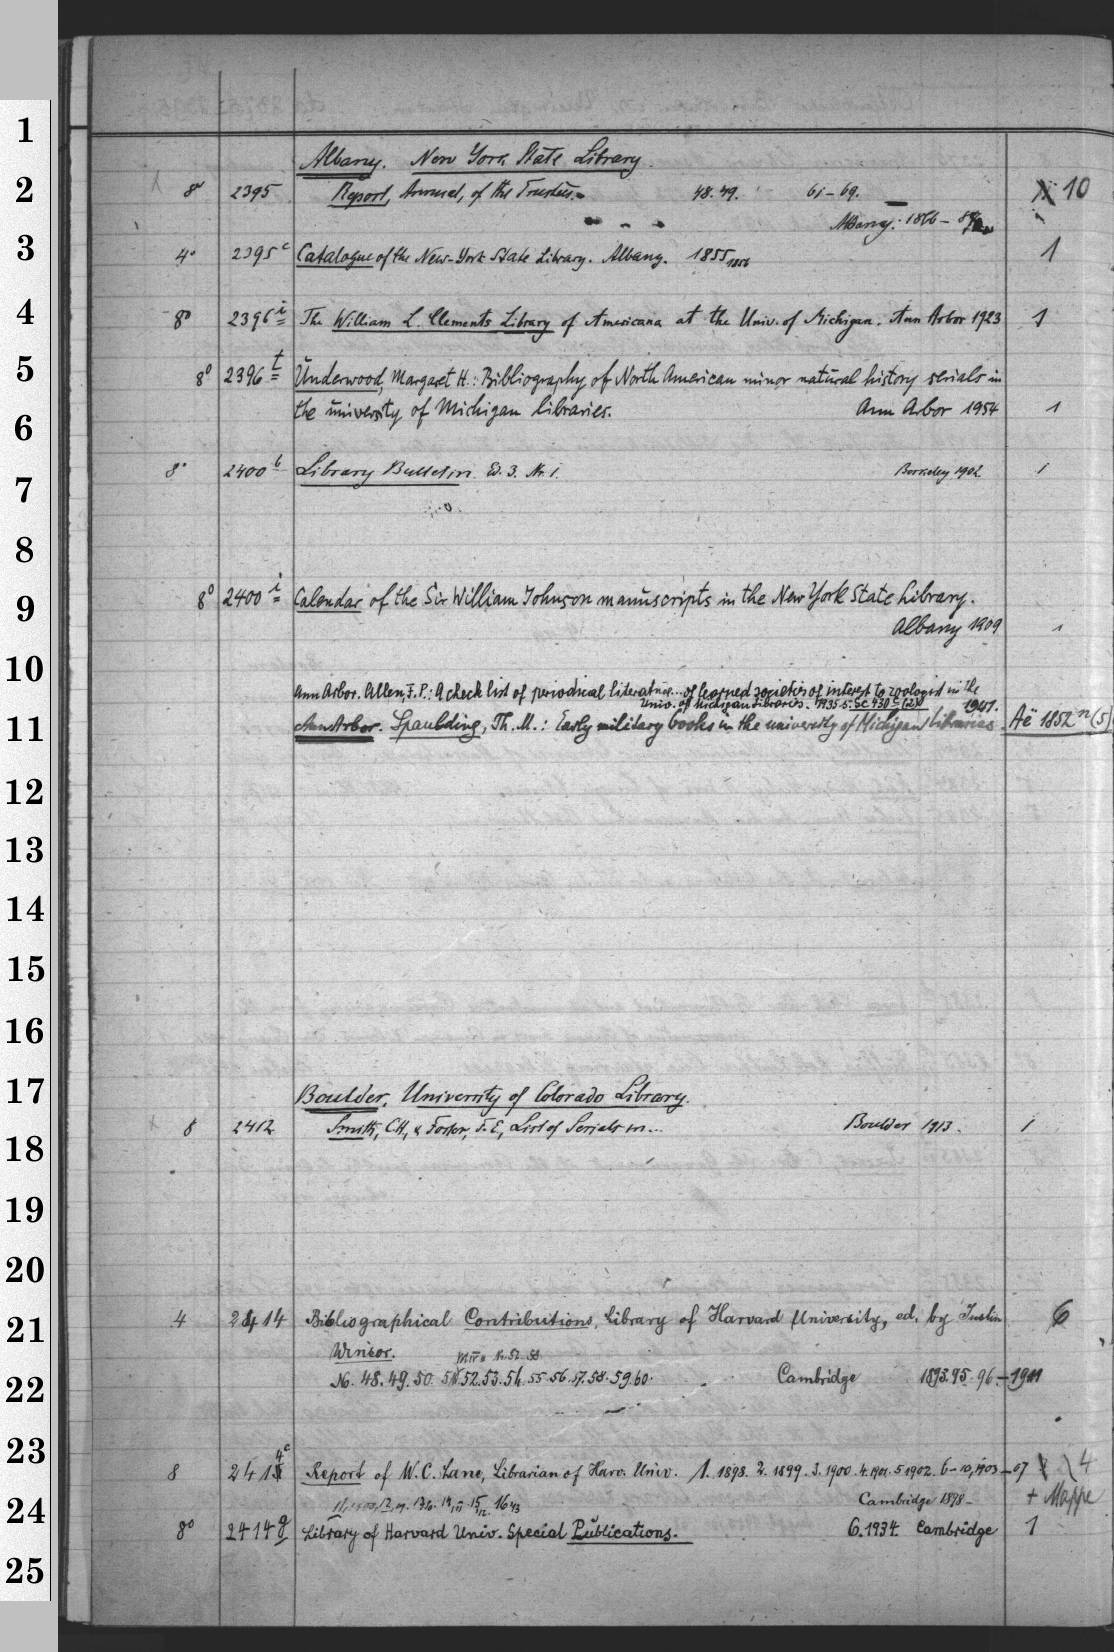 1
Albany. New York State Library.
2
8° 2395 Report, Annual, of the Trustees. 48. 49. 61-69. 10
Albany: 1866-
3
4° 2395 c Catalogue of the New-York State Library. Albany. 1855 1856 1
4
8° 2396 i The William L. Clements Library of Americana at the Univ. of Michigan. Ann Arbor 1923 1
5
8° 2396 t Underwood, Margaret H.: Bibliography of North American minor natural history serials in
the university of Michigan libraries. Ann Arbor 1954 1
6
8° 2400 b Library Bulletin. Ed. 3. Nr. 1. Berkeley 1902 1
7
8
8° 2400 i Calendar of the Sir William Johnson manuscripts in the New York State Library.
9
Albany 1909 1
10
Ann Arbor. Allen, F. P.: A check list of periodical literature... of learned societies of interest to zoologist in the
Univ. of Michigan Libraries. 1935 s. Sc 430 c (2)
11
Ann Arbor. Spaulding, Th. M.: Early military books in the university of Michigan libraries 1941. Aë 1852 n (5)
12
13
14
15
16
17
Boulder. University of Colorado Library.
8 2412 Smith, C.H., & Foster, F. E., List of Serials in... Boulder 1913. 1
18
19
20
21
4 2414 Bibliographical Contributions, Library of Harvard University, ed. by Justin 6
Winsor.
22
No. 48. 49. 50. 52. 53. 54. 55. 56. 57. 58. 59. 60. Cambridge 1893. 95. 96-1911
23
8 241 Report of W. C. Lane, Librarian of Harv. Univ. 1. 1898. 2. 1899. 3. 1900. 4. 1901. 5 1902. 6-10, 1903-07 4
24
Cambridge 1898- + Mappe
8° 2414 g Library of Harvard Univ. Special Publications. 6. 1934. Cambridge 1
25